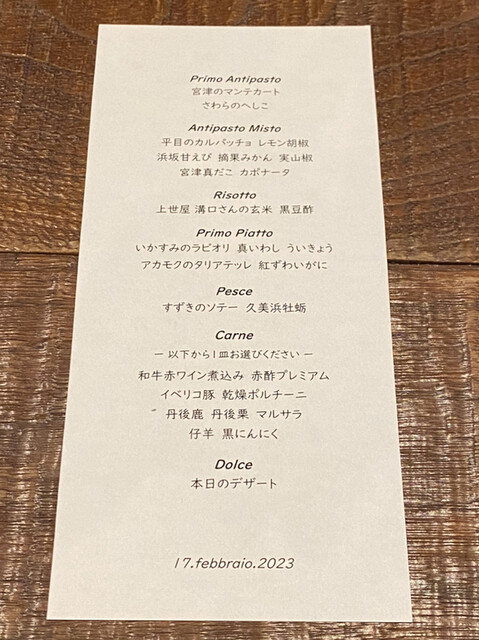 Primo Antipasto
宮津のマンテカート
さわらのへしこ
Antipasto Misto
平目のカルパッチョ レモン胡椒
浜坂甘えび 摘果みかん 実山椒
宮津真だこ カポナータ
Risotto
上世屋 溝口さんの玄米 黒豆酢
Primo Piatto
いかすみのラビオリ 真いわし ういきょう
アカモクのタリアテッレ 紅ずわいがに
Pesce
すずきのソテー 久美浜牡蛎
Carne
ー 以下から1皿お選びください ー
和牛赤ワイン煮込み 赤酢プレミアム
イベリコ豚 乾燥ポルチーニ
丹後鹿 丹後栗 マルサラ
仔羊 黒にんにく
Dolce
本日のデザート
17.febbraio.2023